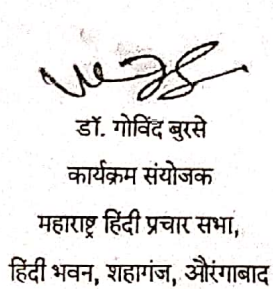 डॉ. गोविंद बुरसे
कार्यक्रम संयोजक
महाराष्ट्र हिंदी प्रचार सभा,
हिंदी भवन, शहागंज, औरंगाबाद